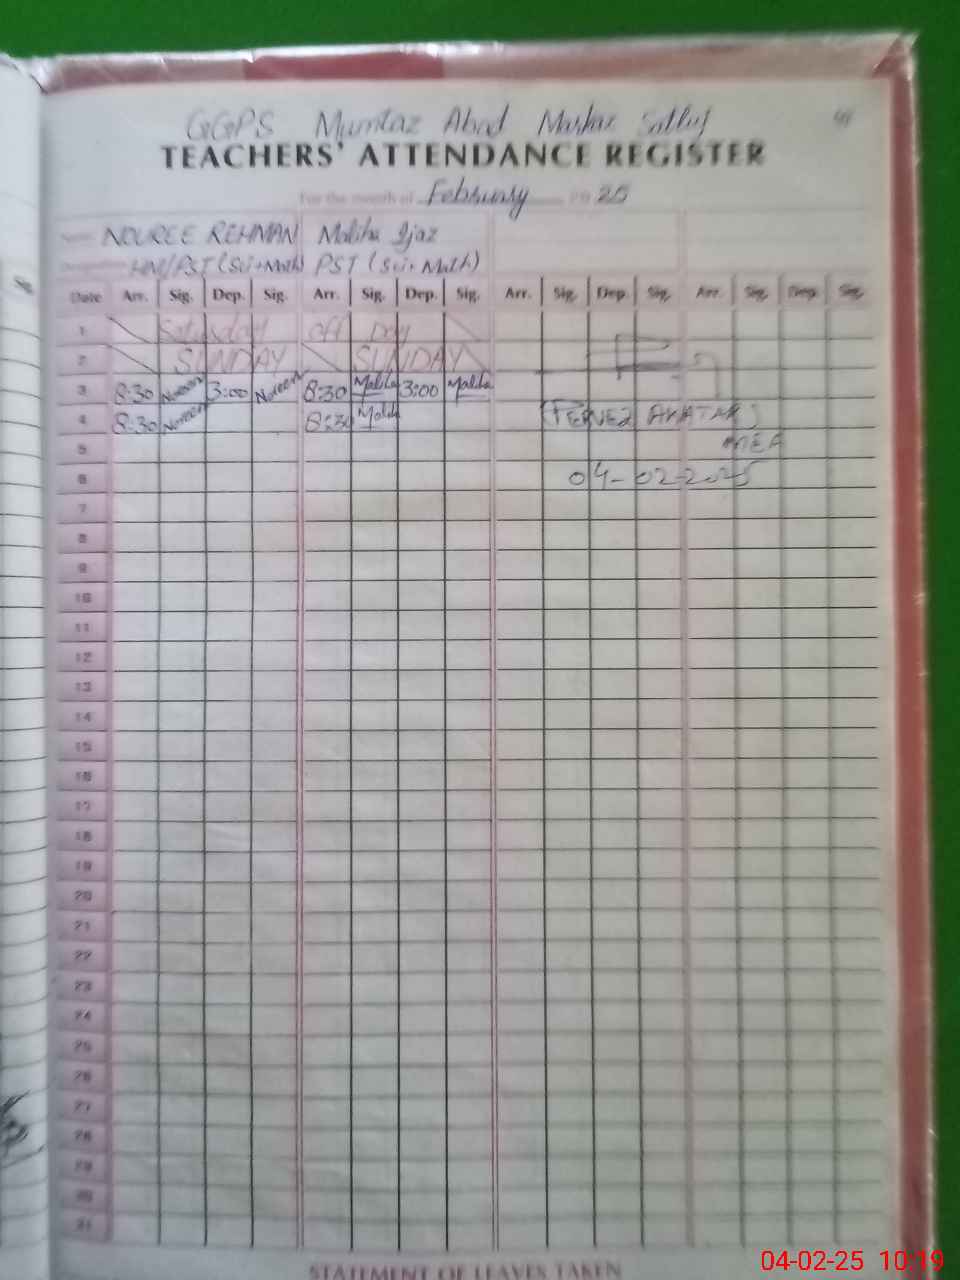 GGPS Mumtaz Abad Markaz Sutluj
TEACHERS' ATTENDANCE REGISTER
For the month of February 20 25
Name NOUREE REHMAN Maliha Ijaz
Designation HM/PST (Sci+Math) PST (Sci+Math)
Date Arr. Sig. Dep. Sig. Arr. Sig. Dep. Sig. Arr. Sig. Dep. Sig. Arr. Sig. Dep. Sig.
1 Saturday off Day
2 SUNDAY SUNDAY
3 8:30 Noreen 3:00 Noreen 8:30 Maliha 3:00 Maliha
4 8:30 Noreen 8:30 Maliha
5 MEA
6 04-02-2025
7
8
9
10
11
12
13
14
15
16
17
18
19
20
21
22
23
24
25
26
27
28
29
30
31
STATEMENT OF LEAVES TAKEN
04-02-25 10:19